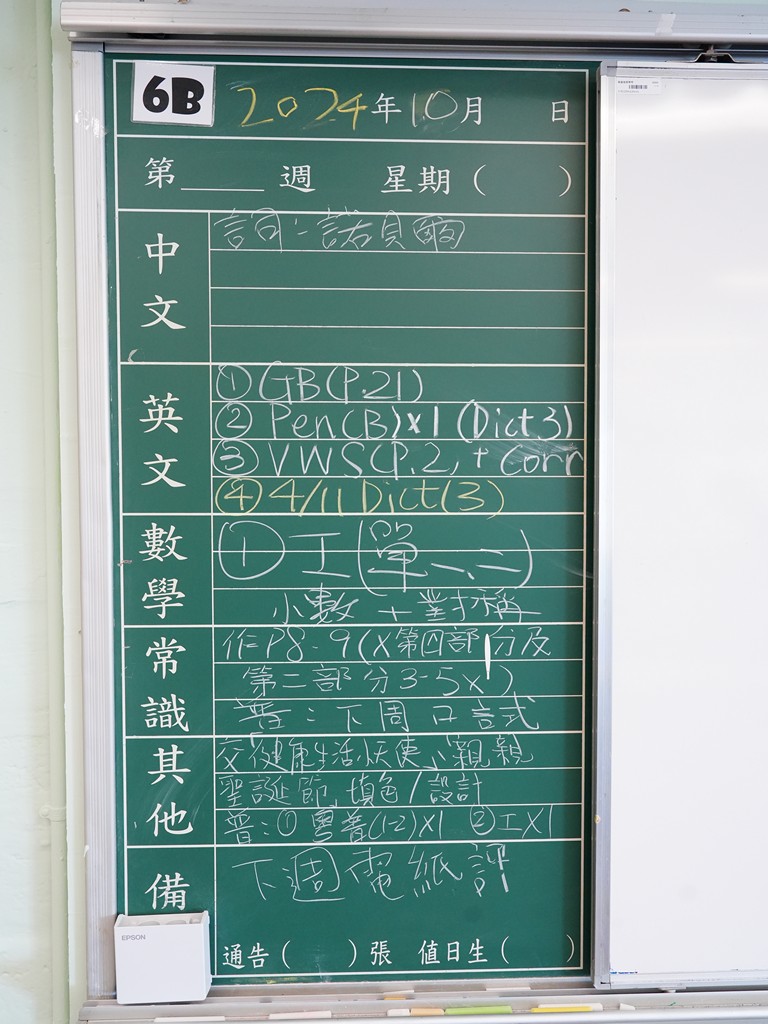 6B 2024年10月 日
第____週 星期( )
中文
詞：諾貝爾
英文
① GB(P.21)
② Pen(B)x1 (Dict 3)
③ VWS(P.2, + Corr
④ 4/11 Dict(3)
數學
① 工(單一、二)
小數 + 對稱
常識
作P8-9(x第四部分及
第二部分3-5x)
普：下周口試
其他
交健康生活小天使、親親
聖誕節、填色/設計
普：① 粵普(1-2)x1 ② 工x1
備
下週電紙評
EPSON
通告( )張 值日生( )